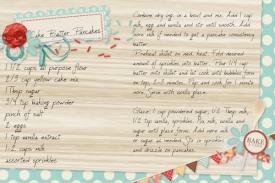 Cake Batter Pancakes
1 1/2 cups all purpose flour
2/3 cup yellow cake mix
1 Tbsp sugar
3/4 tsp baking powder
pinch of salt
2 eggs
1 tsp vanilla extract
1-2 cups milk
assorted sprinkles
Combine dry ing. in a bowl and mix. Add 1 cup
milk, egg and vanilla and stir until smooth. Add
more milk if needed to get a pancake consistency
batter.
Preheat skillet on med heat. Fold desired
amount of sprinkles into batter. Pour 1/4 cup
batter onto skillet and let cook until bubbles form
on top. Flip and cook for 1 minute
more. Serve with vanilla glaze.
Glaze: 1 c powdered sugar, 1/2 Tbsp milk,
1/2 tsp vanilla, sprinkles. Mix milk, vanilla and
sugar until glaze forms. Add more milk
or sugar as needed. Stir in sprinkles
and drizzle on pancakes.
BAKE